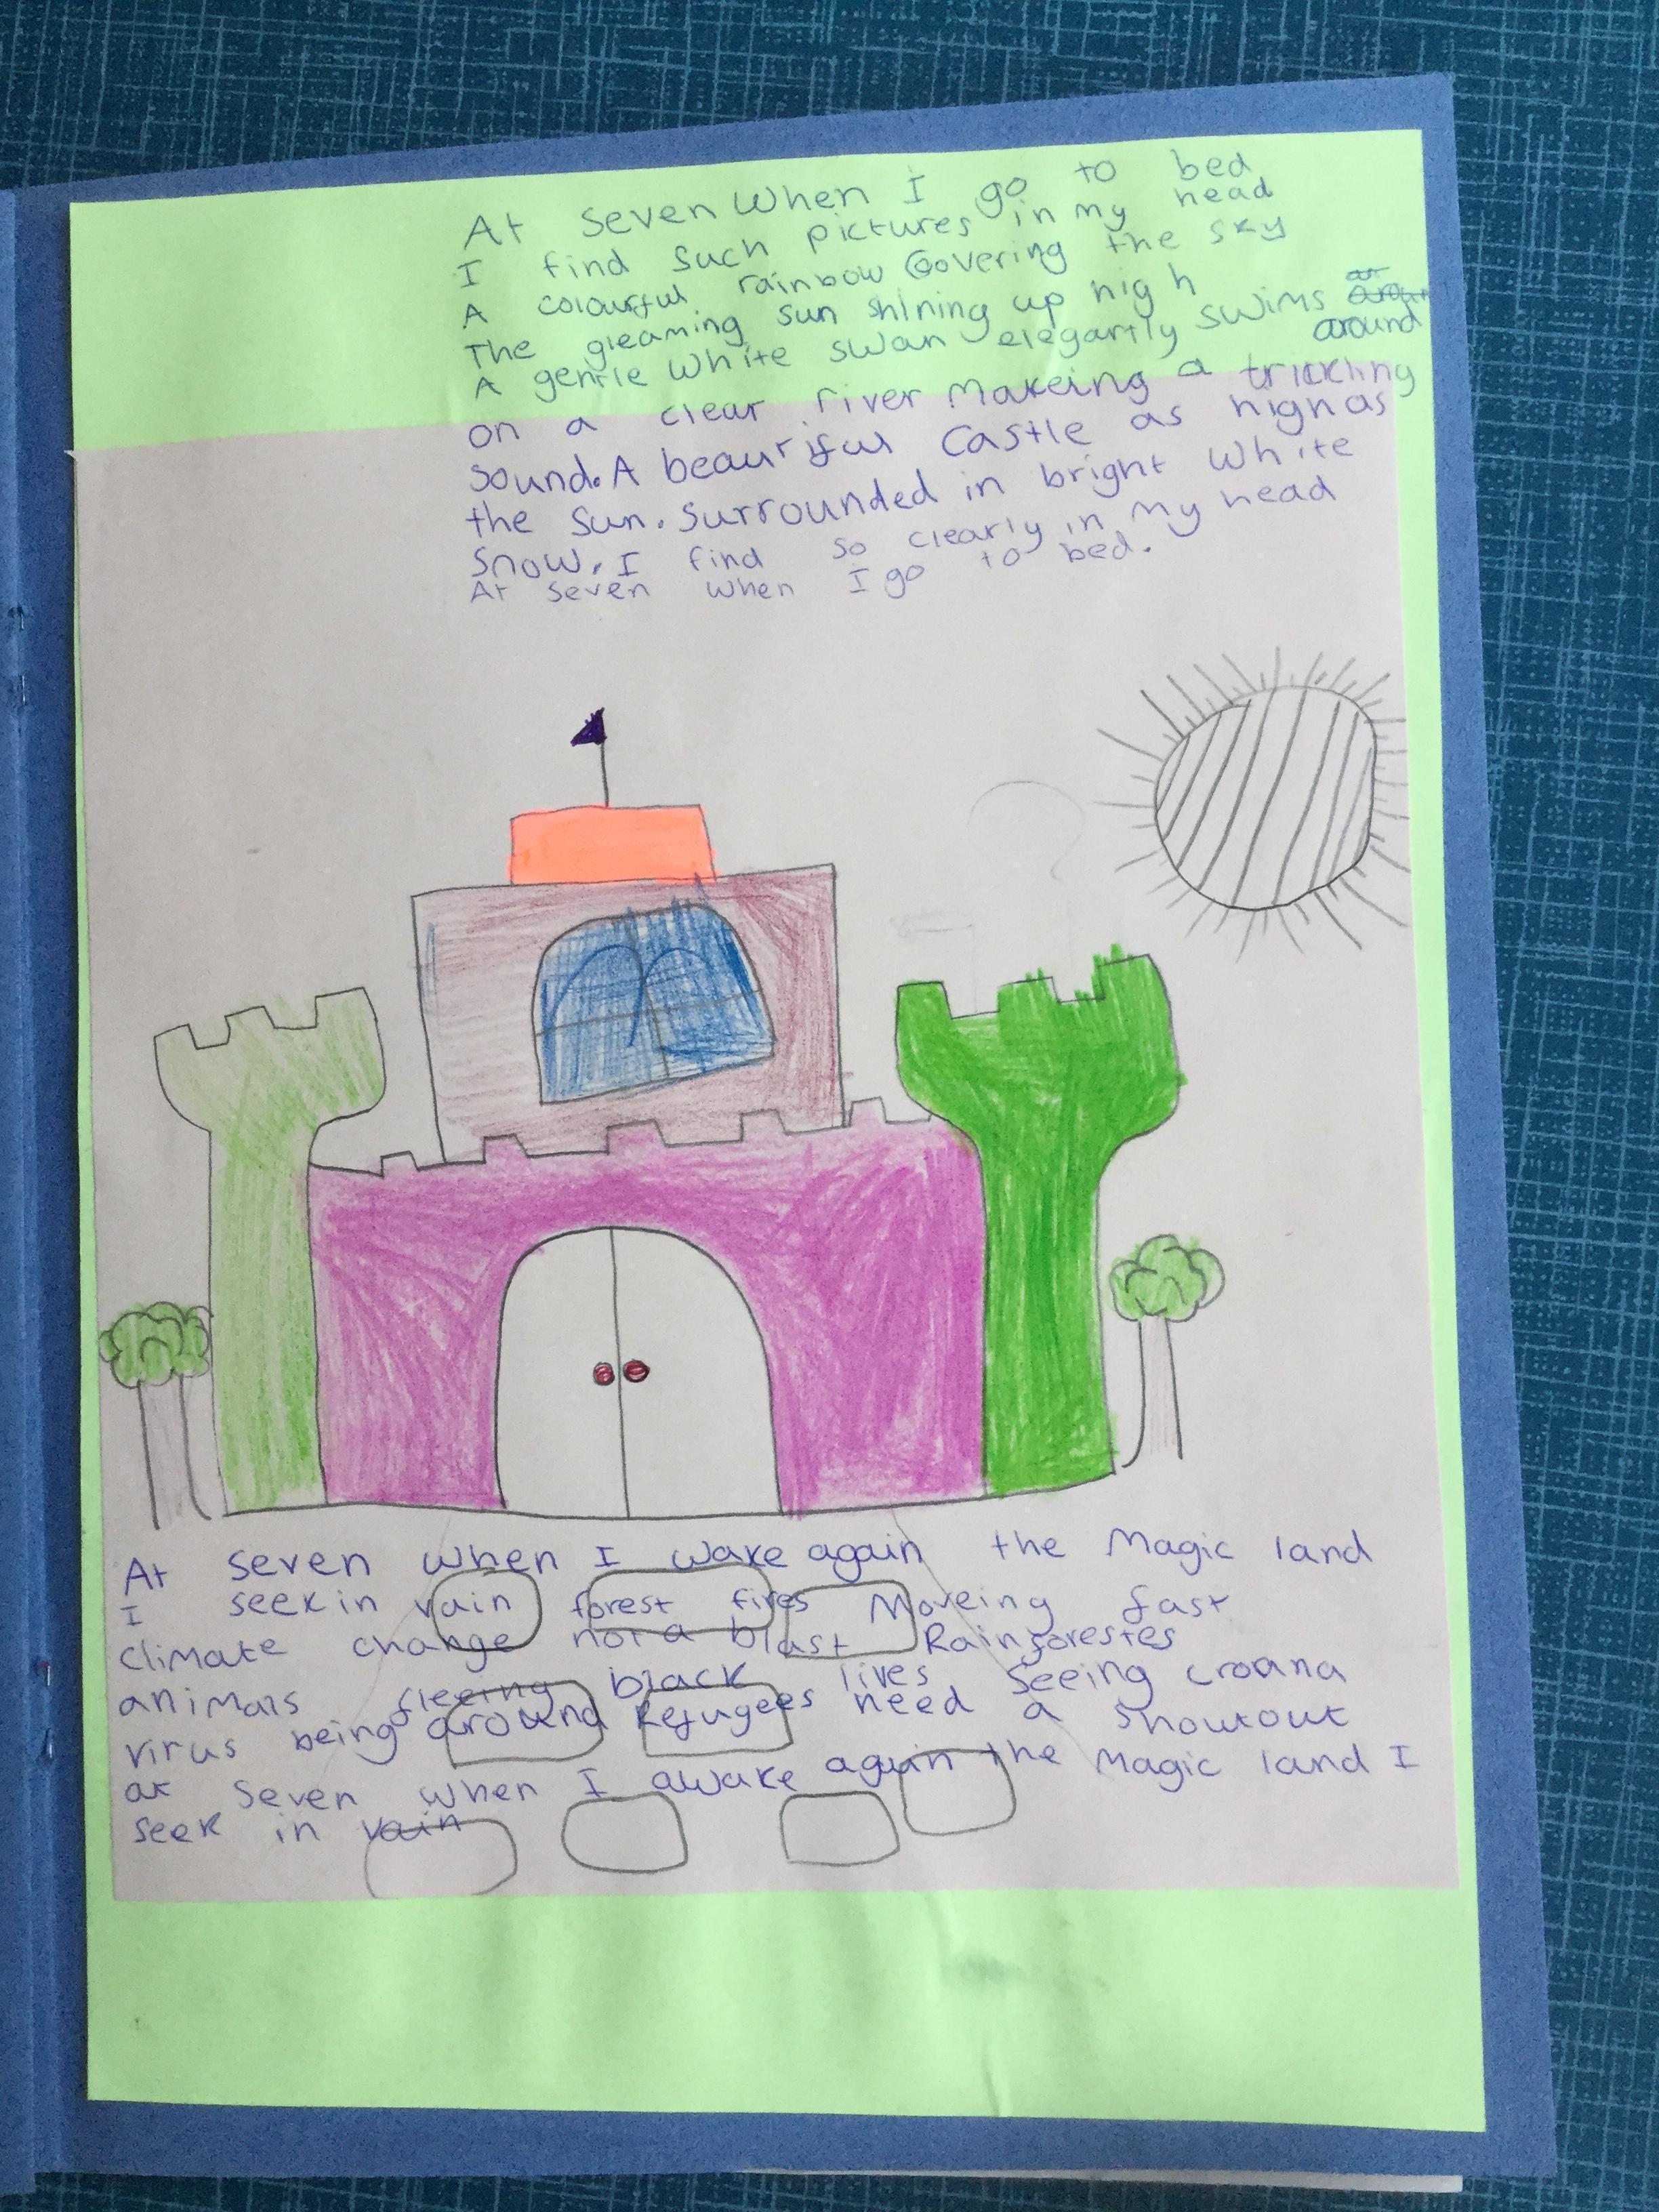 At seven when I go to bed
I find such pictures in my head
A colourful rainbow covering the sky
The gleaming sun shining up high
A gentle white swan elegartly swims
around
on a clear river makeing a trickling
sound. A beautiful castle as high as
the sun. surrounded in bright white
snow. I find so clearly in my head
At seven when I go to bed.
At seven when I wake again the magic land
I seek in vain forest fires moveing fast
climate change not a blast Rainforestes
animals fleeing black lives seeing croana
virus being around Refugees need a shoutout
at seven when I awake again the magic land I
seek in vain